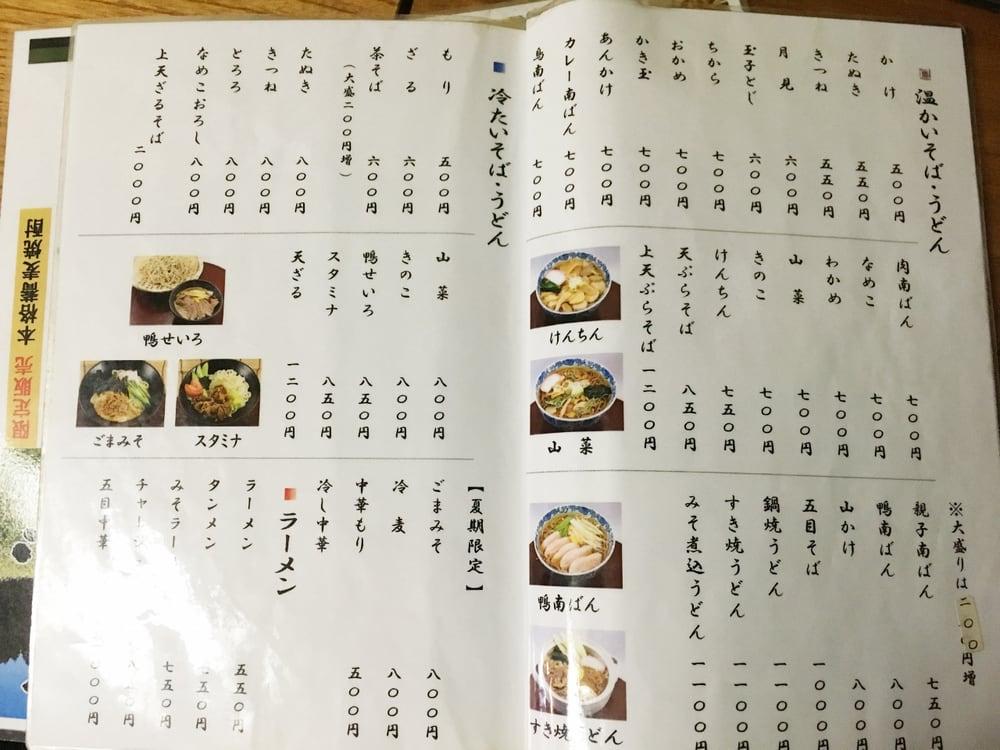 温かいそば・うどん
かけ 五〇〇円
たぬき 五五〇円
きつね 五五〇円
月見 六〇〇円
玉子とじ 六〇〇円
ちから 七〇〇円
おかめ 七〇〇円
かき玉 七〇〇円
あんかけ 七〇〇円
カレー南ばん 七〇〇円
鳥南ばん 七〇〇円
肉南ばん 七〇〇円
なめこ 七〇〇円
わかめ 七〇〇円
山菜 七〇〇円
きのこ 七〇〇円
けんちん 七五〇円
天ぷらそば 八五〇円
上天ぷらそば 一二〇〇円
けんちん
山菜
※大盛りは二〇〇円増
親子南ばん 七五〇円
鴨南ばん 八〇〇円
山かけ 八〇〇円
五目そば 一〇〇〇円
鍋焼うどん 一一〇〇円
すき焼うどん 一一〇〇円
みそ煮込うどん 一一〇〇円
鴨南ばん
すき焼うどん
冷たいそば・うどん
もり 五〇〇円
ざる 六〇〇円
茶そば 六〇〇円
(大盛二〇〇円増)
たぬき 八〇〇円
きつね 八〇〇円
とろろ 八〇〇円
なめこおろし 八〇〇円
上天ざるそば 二〇〇〇円
山菜 八〇〇円
きのこ 八〇〇円
鴨せいろ 八五〇円
スタミナ 八五〇円
天ざる 一二〇〇円
鴨せいろ
スタミナ
ごまみそ
【夏期限定】
ごまみそ 八〇〇円
冷麦 八〇〇円
中華もり 五〇〇円
冷し中華
ラーメン
ラーメン 五五〇円
タンメン 五〇円
みそラー 七五〇円
チャー
五目中華 〇〇円
限定販売 本格蕎麦焼酎